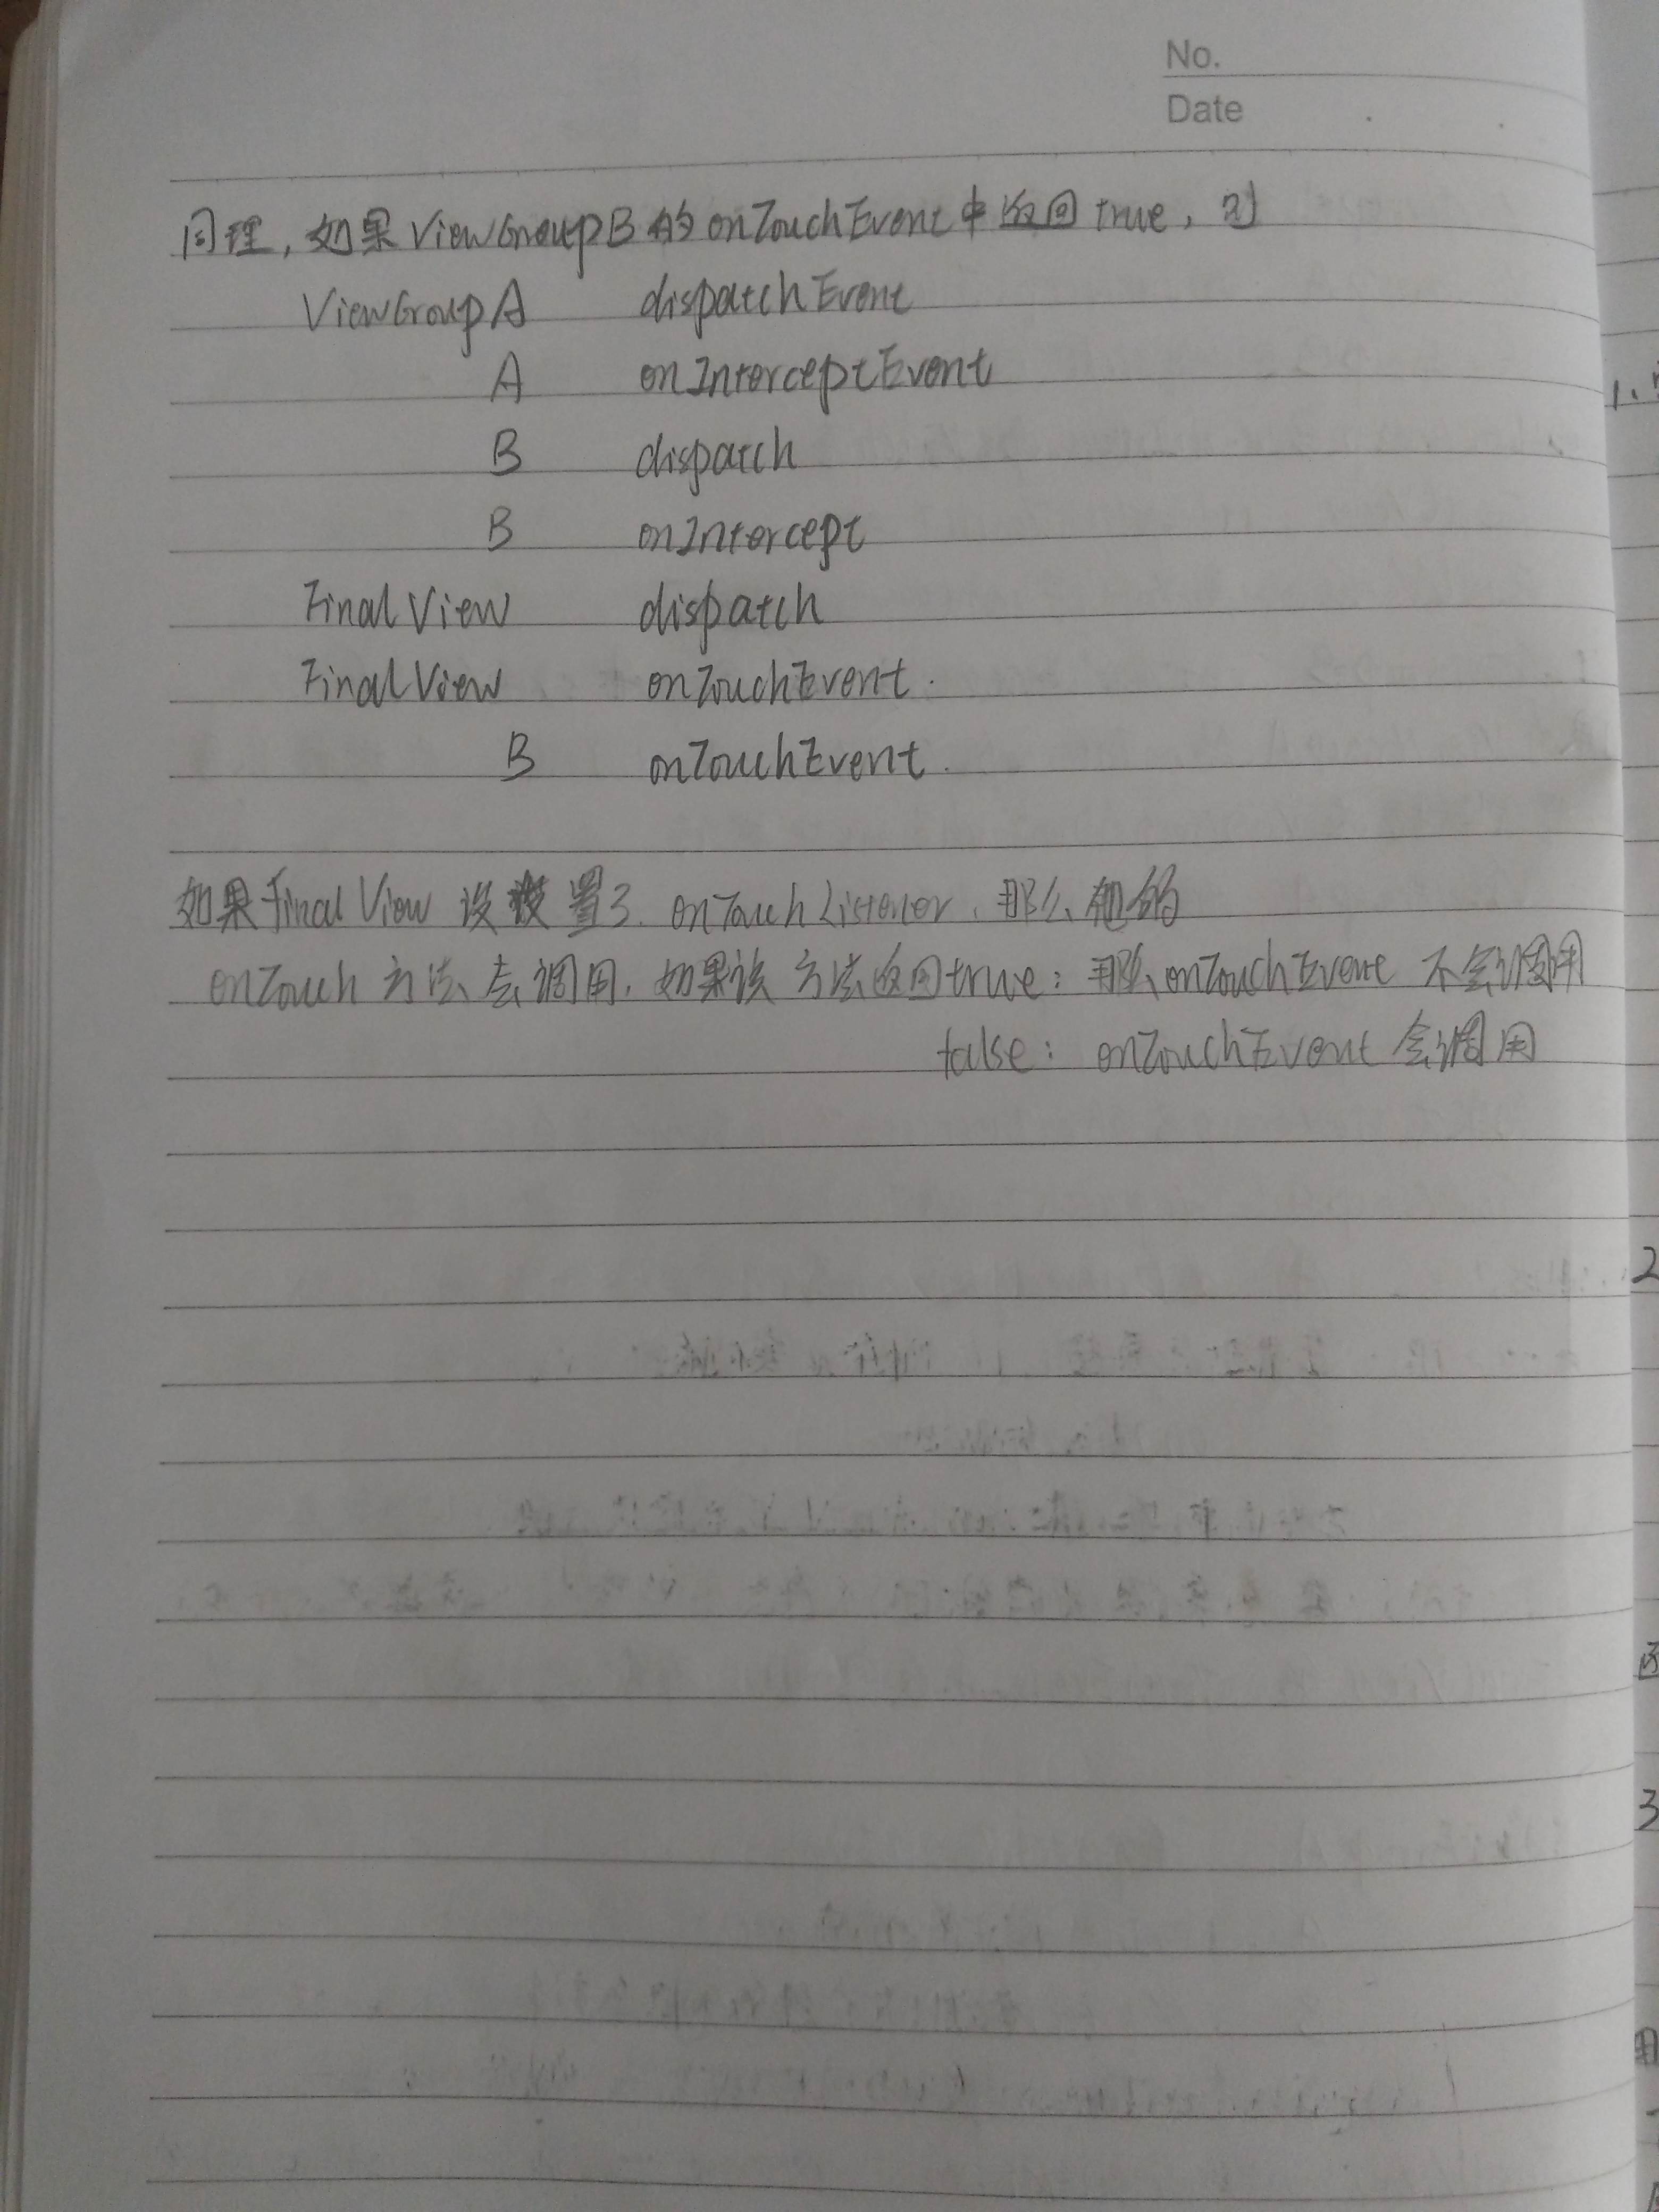 No.
Date
同理,如果ViewGroupB的onTouchEvent中返回true,则
ViewGroupA dispatchEvent
A onInterceptEvent
B dispatch
B onIntercept
FinalView dispatch
FinalView onTouchEvent.
B onTouchEvent.
如果FinalView设置了onTouchListener,那么他的
onTouch方法会调用,如果该方法返回true:那么onTouchEvent不会调用
false:onTouchEvent会调用
1、
2
3